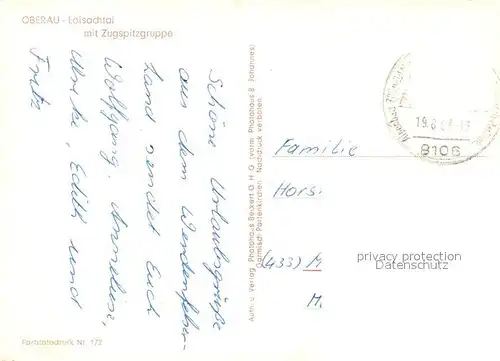 OBERAU - Loisachtal
mit Zugspitzgruppe
Schöne Urlaubsgrüße
aus dem Werdenfelser-
Land sendet Euch
Wolfgang, Anneliese,
Edith und
Fritz
Farbfotodruck Nr. 172
Auth. u. Verlag Photohaus Beckert O H G (vorm. Photohaus B. Johannes)
Garmisch-Partenkirchen Nachdruck verboten
19.8
8106
Familie
Hors
(433) M
M.
privacy protection
Datenschutz